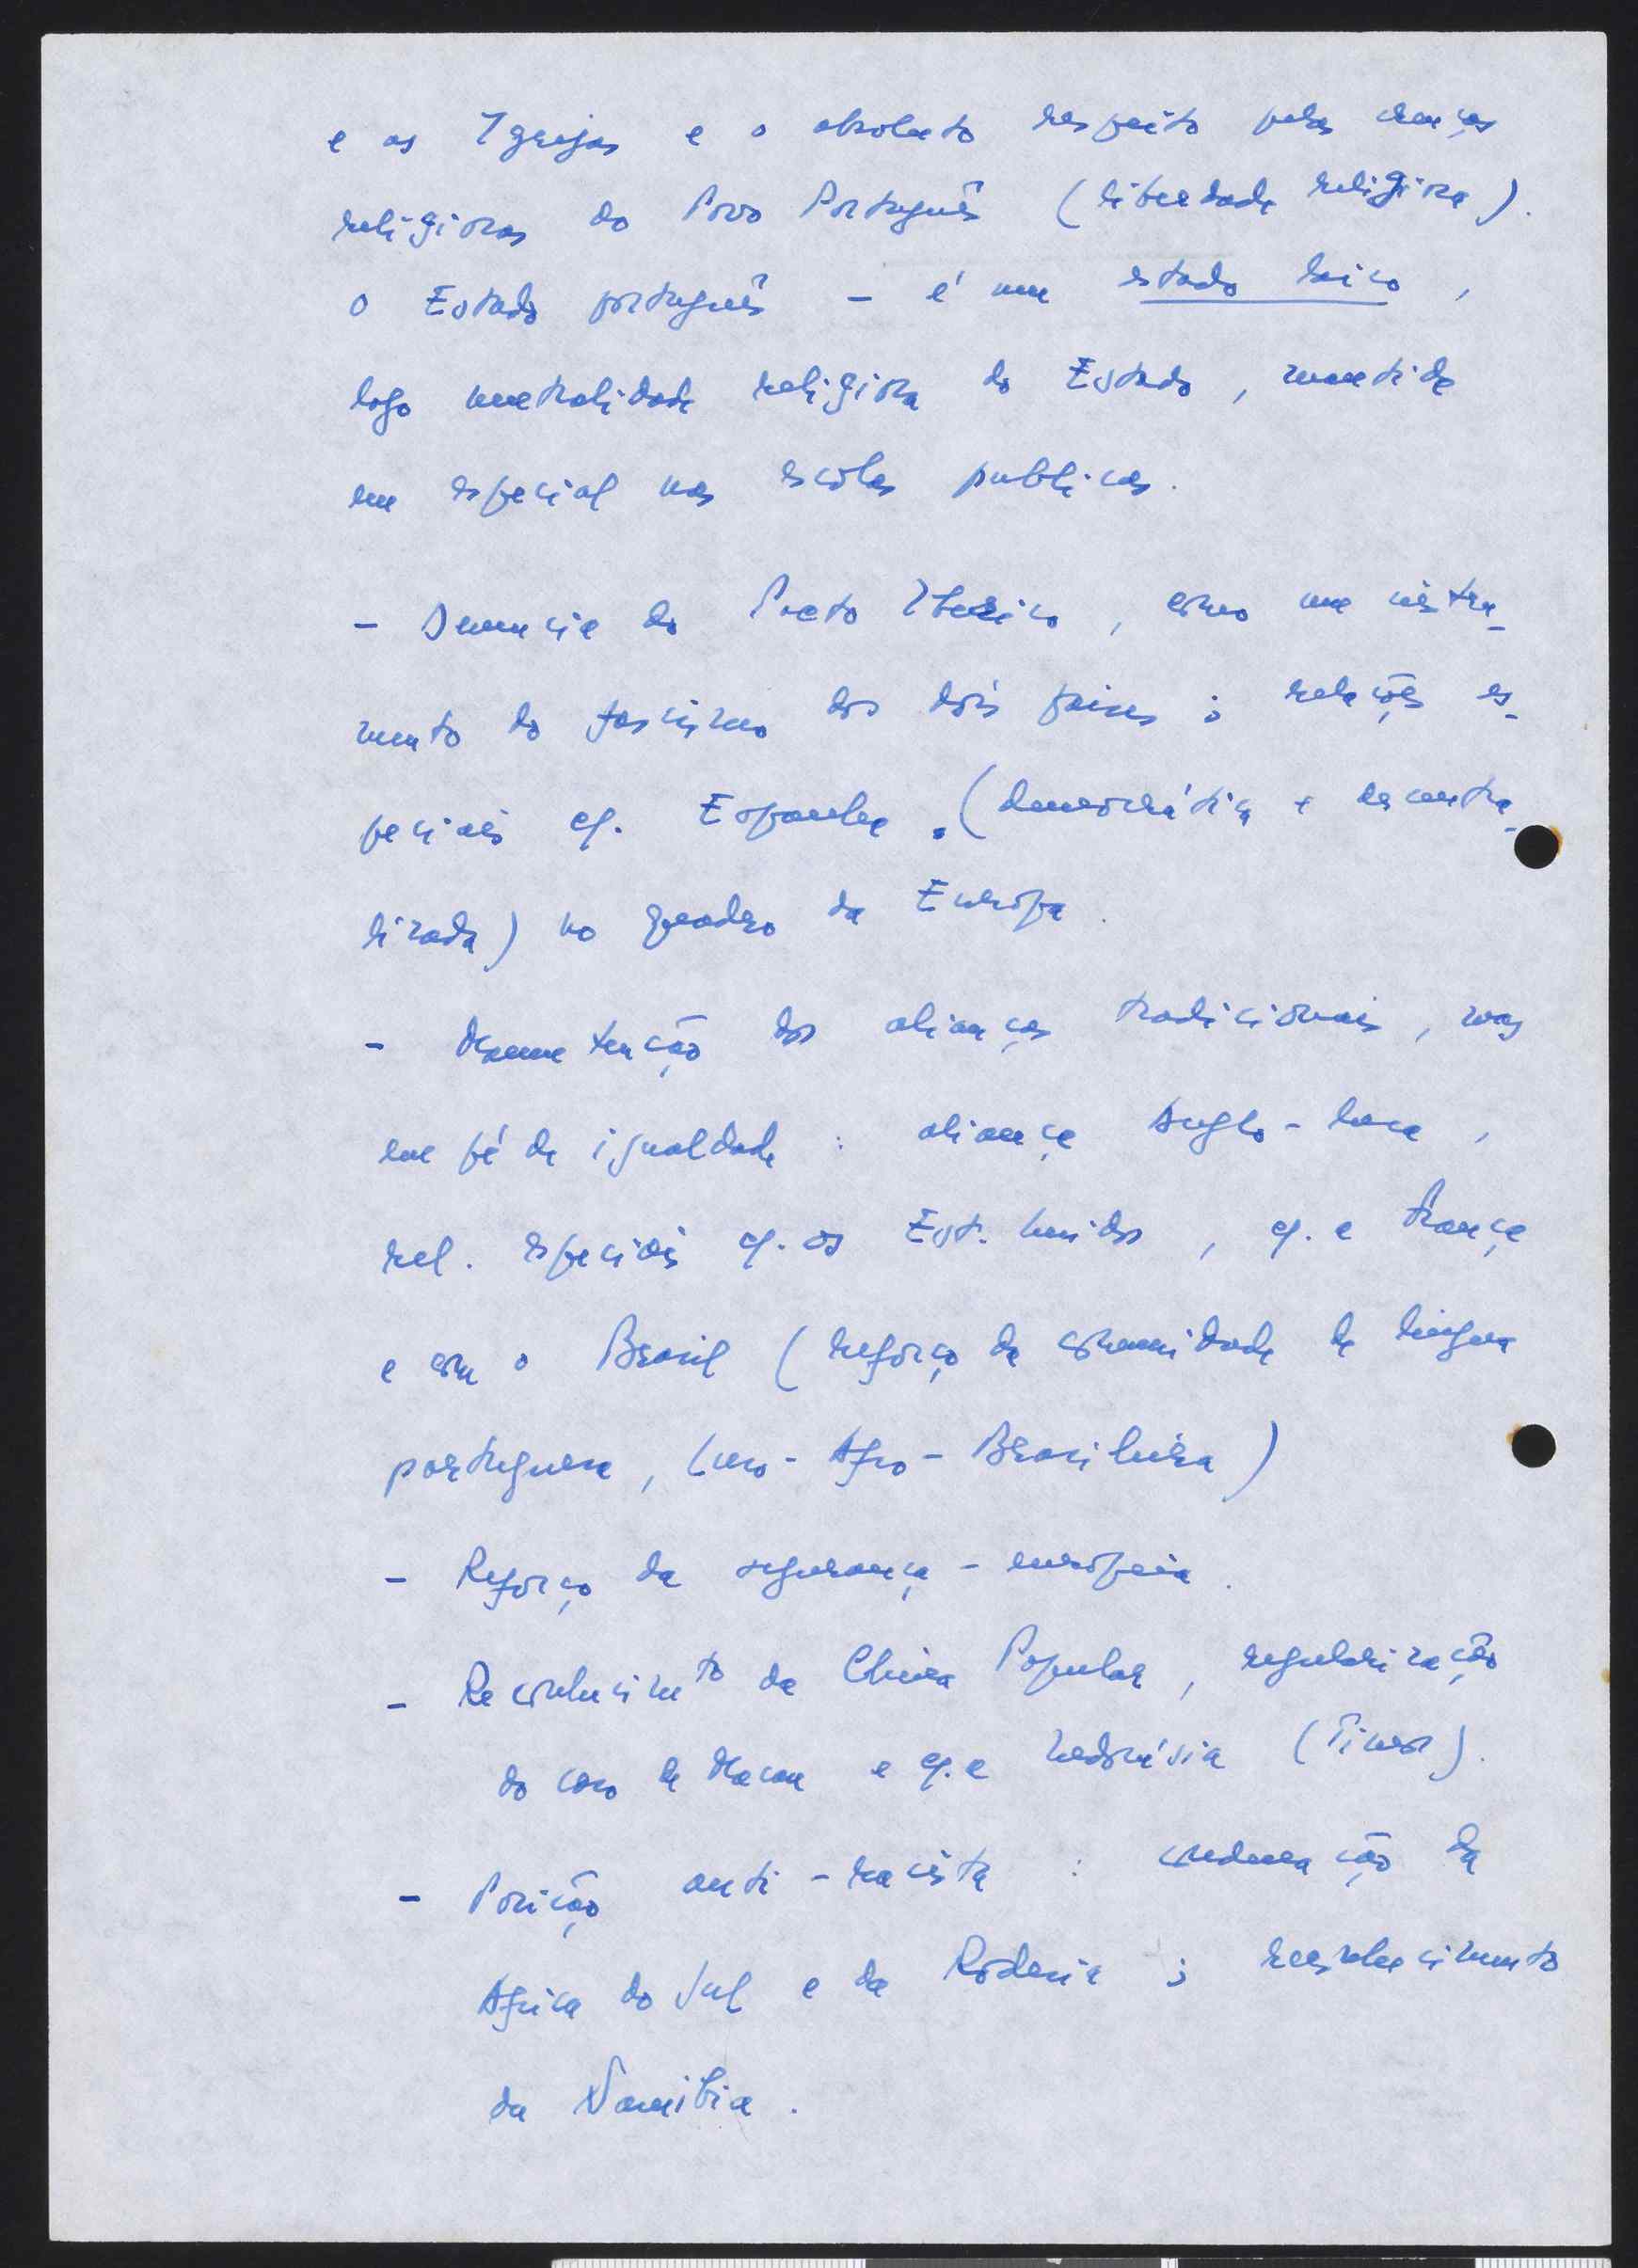 e as Igrejas e o absoluto respeito pelas crenças
religiosas do Povo Português (liberdade religiosa).
O Estado português - é um estado laico,
logo neutralidade religiosa do Estado, mantida
em especial nas escolas publicas.
- Denuncia do Pacto Iberico, como um instru-
mento do fascismo dos dois paises; relações es-
peciais c/. Espanha (democrática e descentra-
lizada) no quadro da Europa.
- Manutenção das alianças tradicionais, mas
em pé de igualdade: aliança Anglo-lusa,
rel. especiais c/. os Est. Unidos, c/. a França
e com o Brasil (reforço da comunidade de lingua
portuguesa, Luso-Afro-Brasileira)
- Reforço da segurança - europeia.
- Reconhecimto da China Popular, regularização
do caso de Macau e c/. a Indonésia (Timor).
- Posição anti-racista: condenação da
Africa do Sul e da Rodesia; reconhecimento
da Namibia.